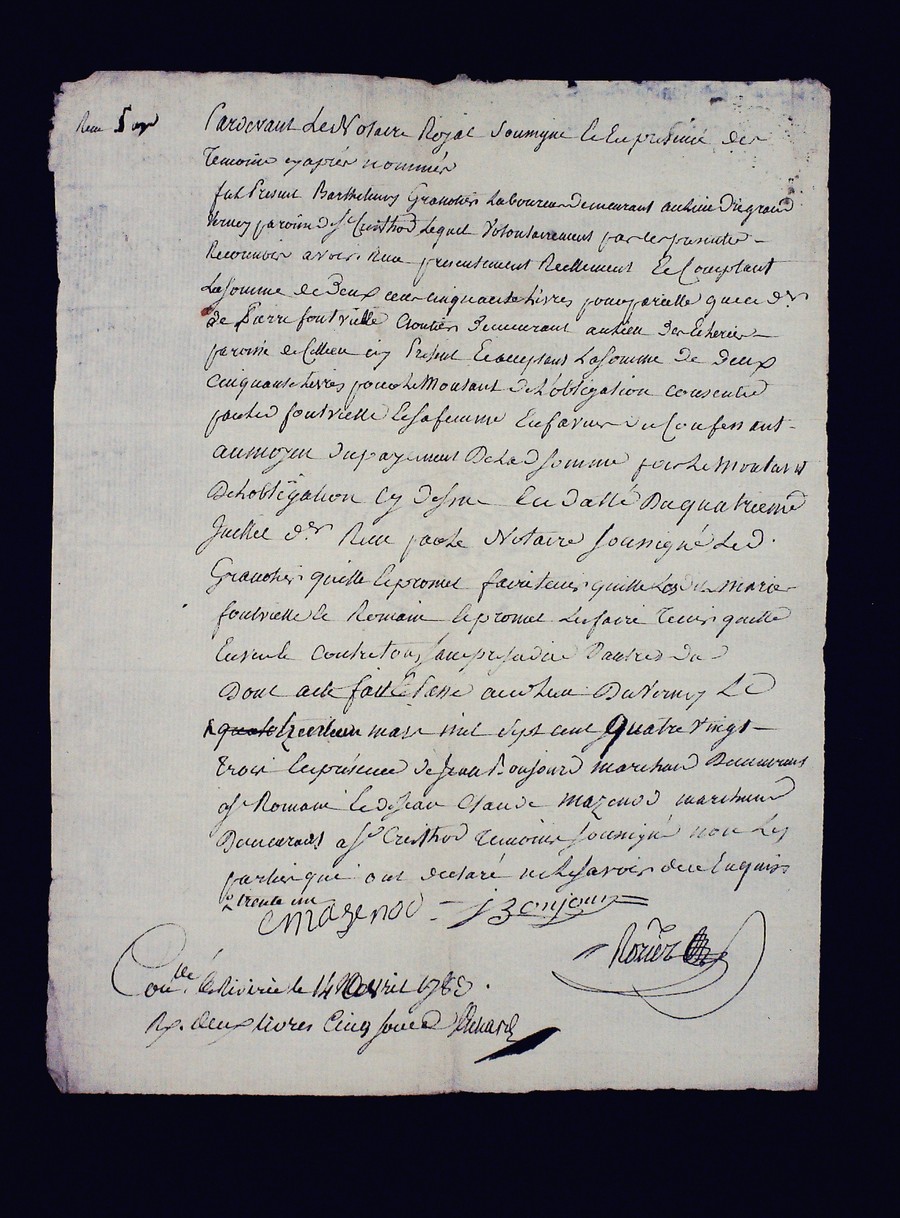 Pardevant Le Notaire Royal Soussigné & En presence des
Temoins cy apres nommés
fut Present Barthelemy Granotier Laboureur demeurant au lieu du grand
Verney paroisse de St Cristhod Lequel Volontairement par ces presentes
Reconnois avoir Recu presentement Reellement & Comptant
La Somme de Deux cent cinquante Livres
de Pierre fontvielle Cloutier Demeurant au lieu
paroisse de Cellieu cy Present & acceptant La Somme de deux
cinquante Livres pour Le Montant de L'obligation consentie
par led fontvielle & Sa femme En faveur du Confessant
au moyen du payement De Lad Somme pour Le Montant
De L'obligation Cy dessus En datte Du quatrieme
Juillet der Recu par Le Notaire Soussigné Led
Granotier quitte & promet faire tenir quitte Marie
fontvielle & Romain & promet Les faire Tenir quitte
Envers & Contre tous Sans prejudice D'autres Du
Dont acte fait & Passé au lieu Du Verney Le
mars mil Sept cent Quatre Vingt
trois En presence de Jean Bonjour marchand Demeurant
a St Romain & de Jean Claude Mazenod marchand
Demeurant a St Cristhod Temoins Soussignés non Les
parties qui ont declaré ne Le Savoir de ce Enquis
trente un
C Mazenod J Bonjour
Rovier
Conllé a Rivedie le 14 avril 1783.
Rx. deux livres Cinq Sous